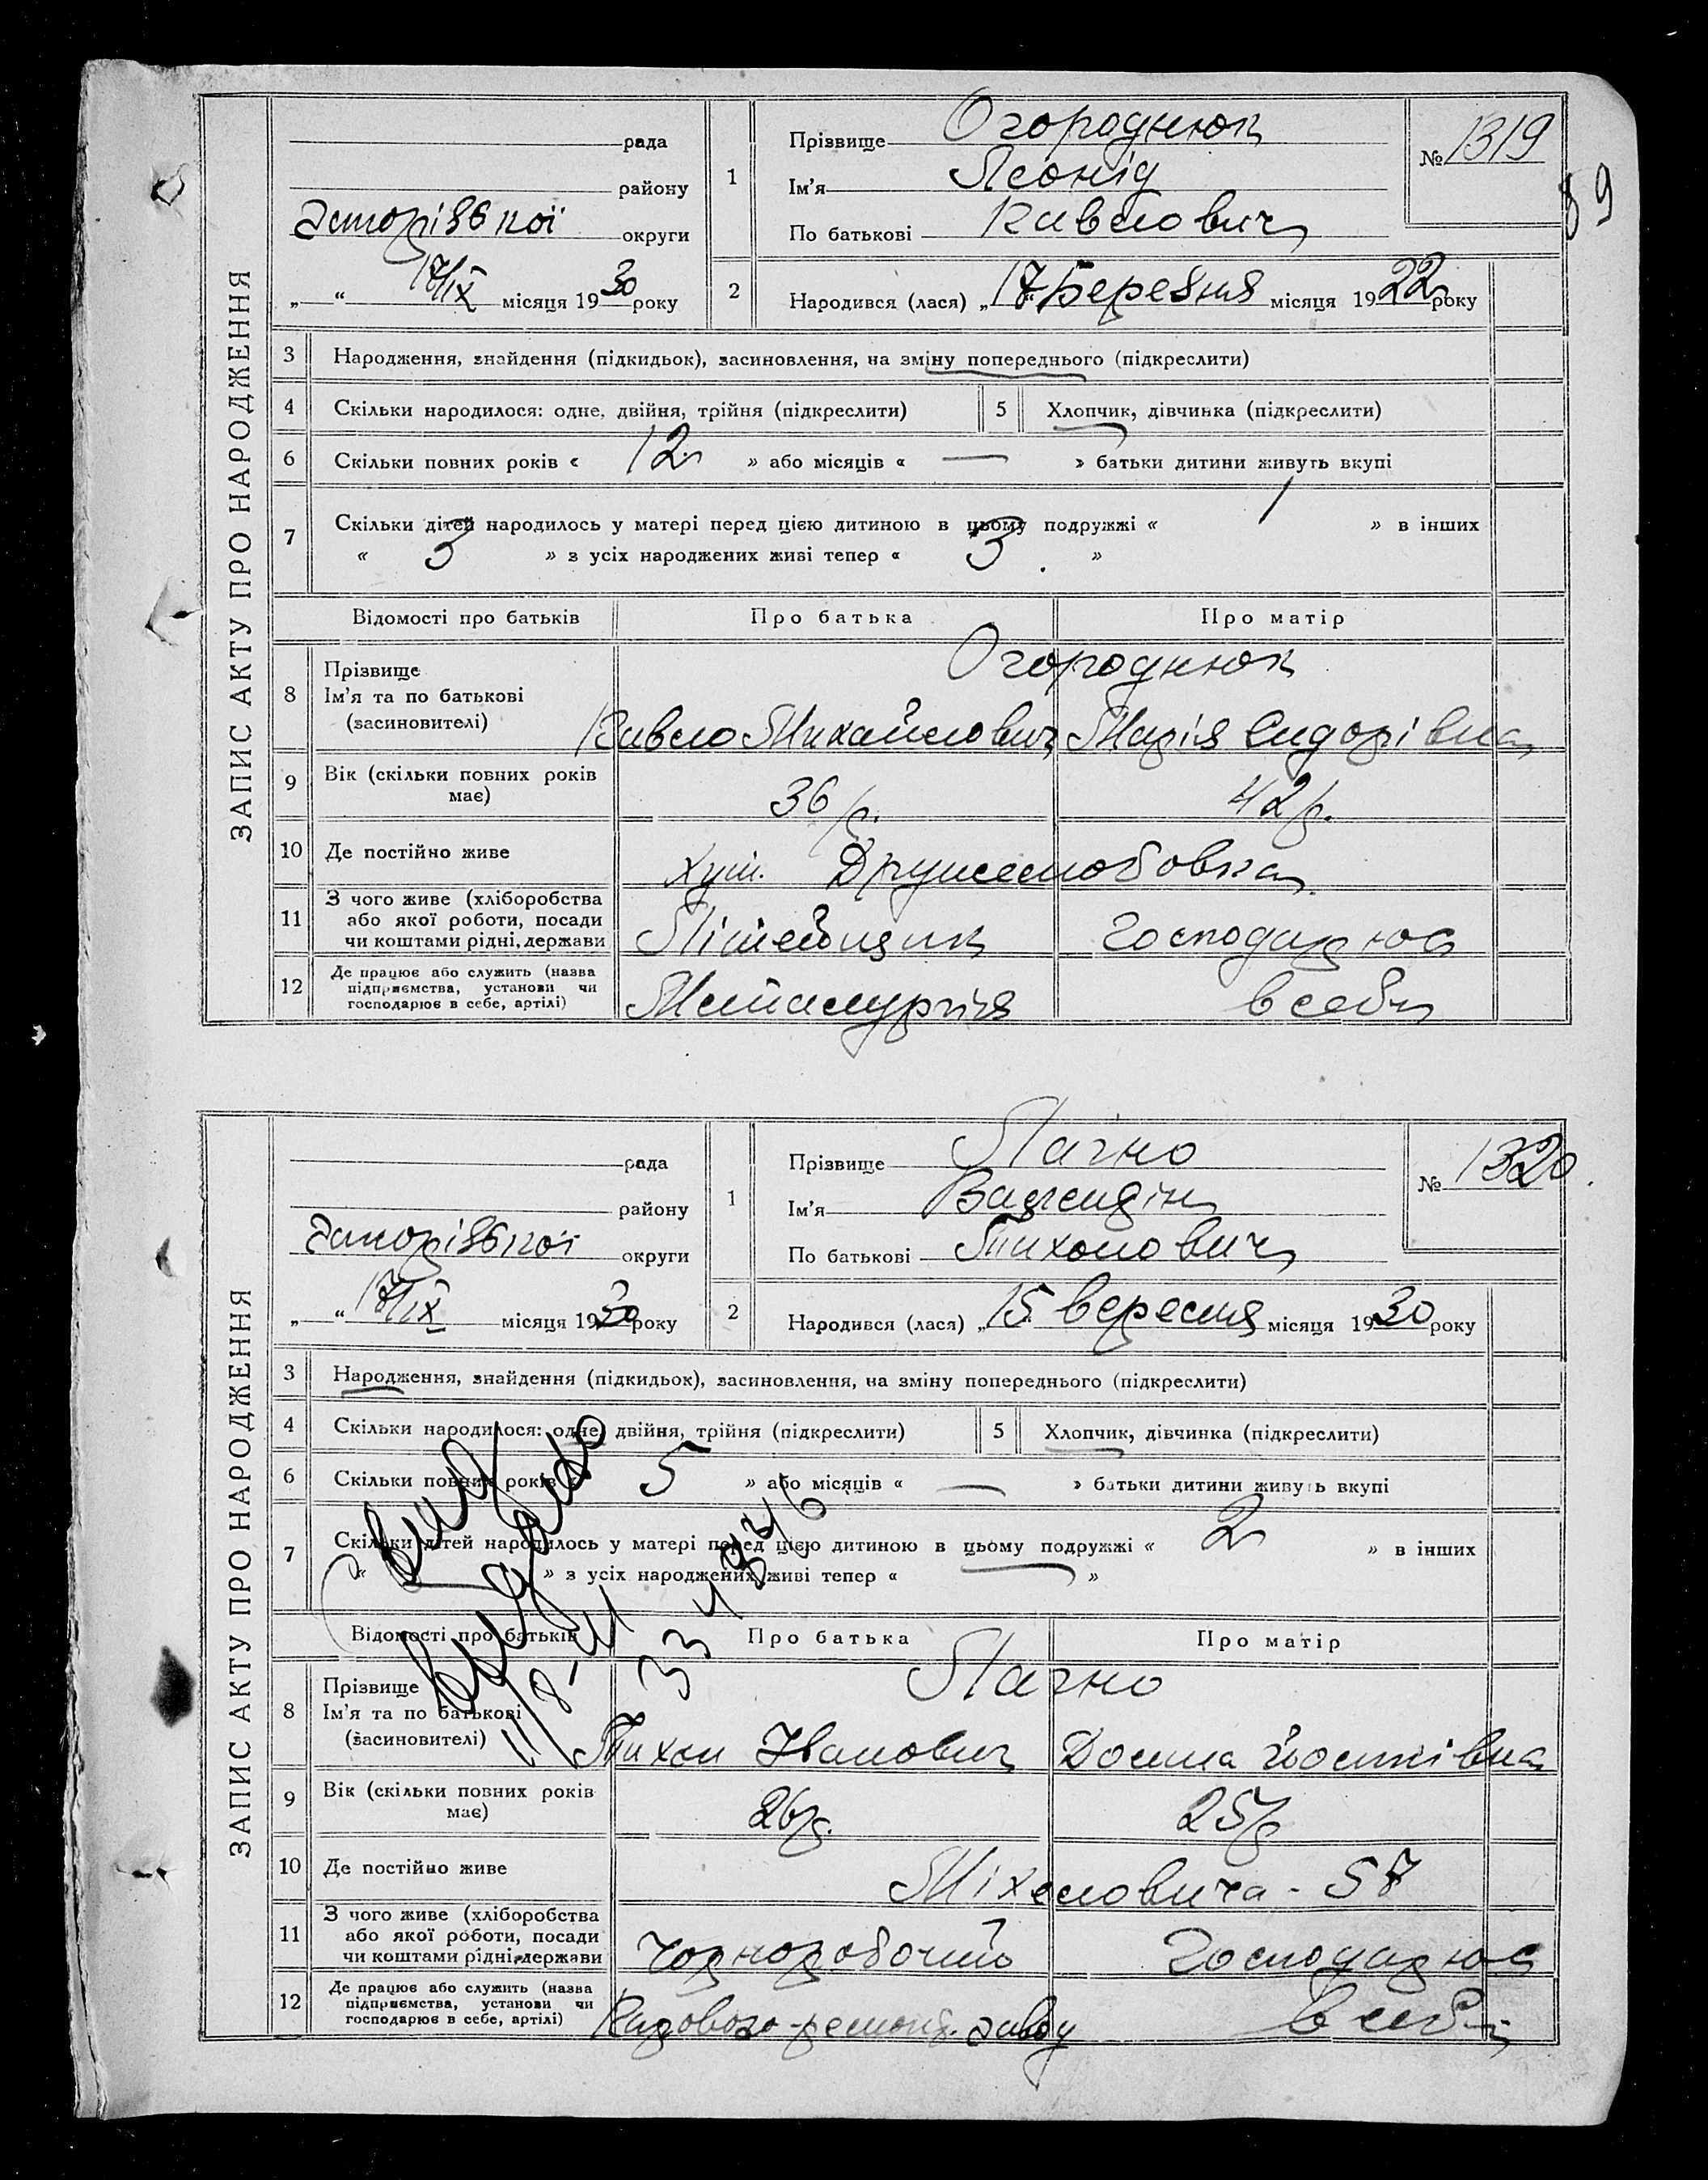 ЗАПИС АКТУ ПРО НАРОДЖЕННЯ
рада
району
округи
„ “ 17/IX місяця 1930 року
1
Прізвище Огороднюк
Ім'я Леонід
По батькові Павлович
№ 1319
89
2
Народився (лася) „17“ Березня місяця 1922 року
3 Народження, знайдення (підкидьок), засиновлення, на зміну попереднього (підкреслити)
4 Скільки народилося: одне, двійня, трійня (підкреслити) 5 Хлопчик, дівчинка (підкреслити)
6 Скільки повних років « 12 » або місяців « — » батьки дитини живуть вкупі
7 Скільки дітей народилось у матері перед цією дитиною в цьому подружжі « 1 » в інших
« 3 » з усіх народжених живі тепер « 3 »
Відомості про батьків Про батька Про матір
8 Прізвище
Ім'я та по батькові
(засиновителі)
Огороднюк
Павло Михайлович Марія Сидорівна
9 Вік (скільки повних років має) 36 р. 42 р.
10 Де постійно живе хут. Дружелюбовка
11 З чого живе (хліборобства
або якої роботи, посади
чи коштами рідні, держави
Літейщик Господарює
12 Де працює або служить (назва
підприємства, установи чи
господарює в себе, артілі)
Металургія в себе
ЗАПИС АКТУ ПРО НАРОДЖЕННЯ
рада
району
округи
„ “ 17/IX місяця 1930 року
1
Прізвище Лачно
Ім'я Валендін
По батькові Тихонович
№ 1320.
2
Народився (лася) „15 вересня місяця 1930 року
3 Народження, знайдення (підкидьок), засиновлення, на зміну попереднього (підкреслити)
4 Скільки народилося: одне, двійня, трійня (підкреслити) 5 Хлопчик, дівчинка (підкреслити)
6 Скільки повних років « 5 » або місяців « — » батьки дитини живуть вкупі
7 Скільки дітей народилось у матері перед цією дитиною в цьому подружжі « 2 » в інших
« — » з усіх народжених живі тепер « »
Відомості про батьків Про батька Про матір
8 Прізвище
Ім'я та по батькові
(засиновителі)
Лачно
Тихон Иванович Домна Йосипівна
9 Вік (скільки повних років має) 26 р. 25 р
10 Де постійно живе Міхеловича - 57
11 З чого живе (хліборобства
або якої роботи, посади
чи коштами рідні, держави
Чорноробочий Господарює
12 Де працює або служить (назва
підприємства, установи чи
господарює в себе, артілі)
ремонт. заводу в себе